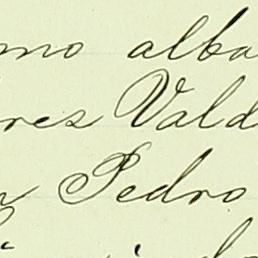 mo alba
res Vald
Pedro